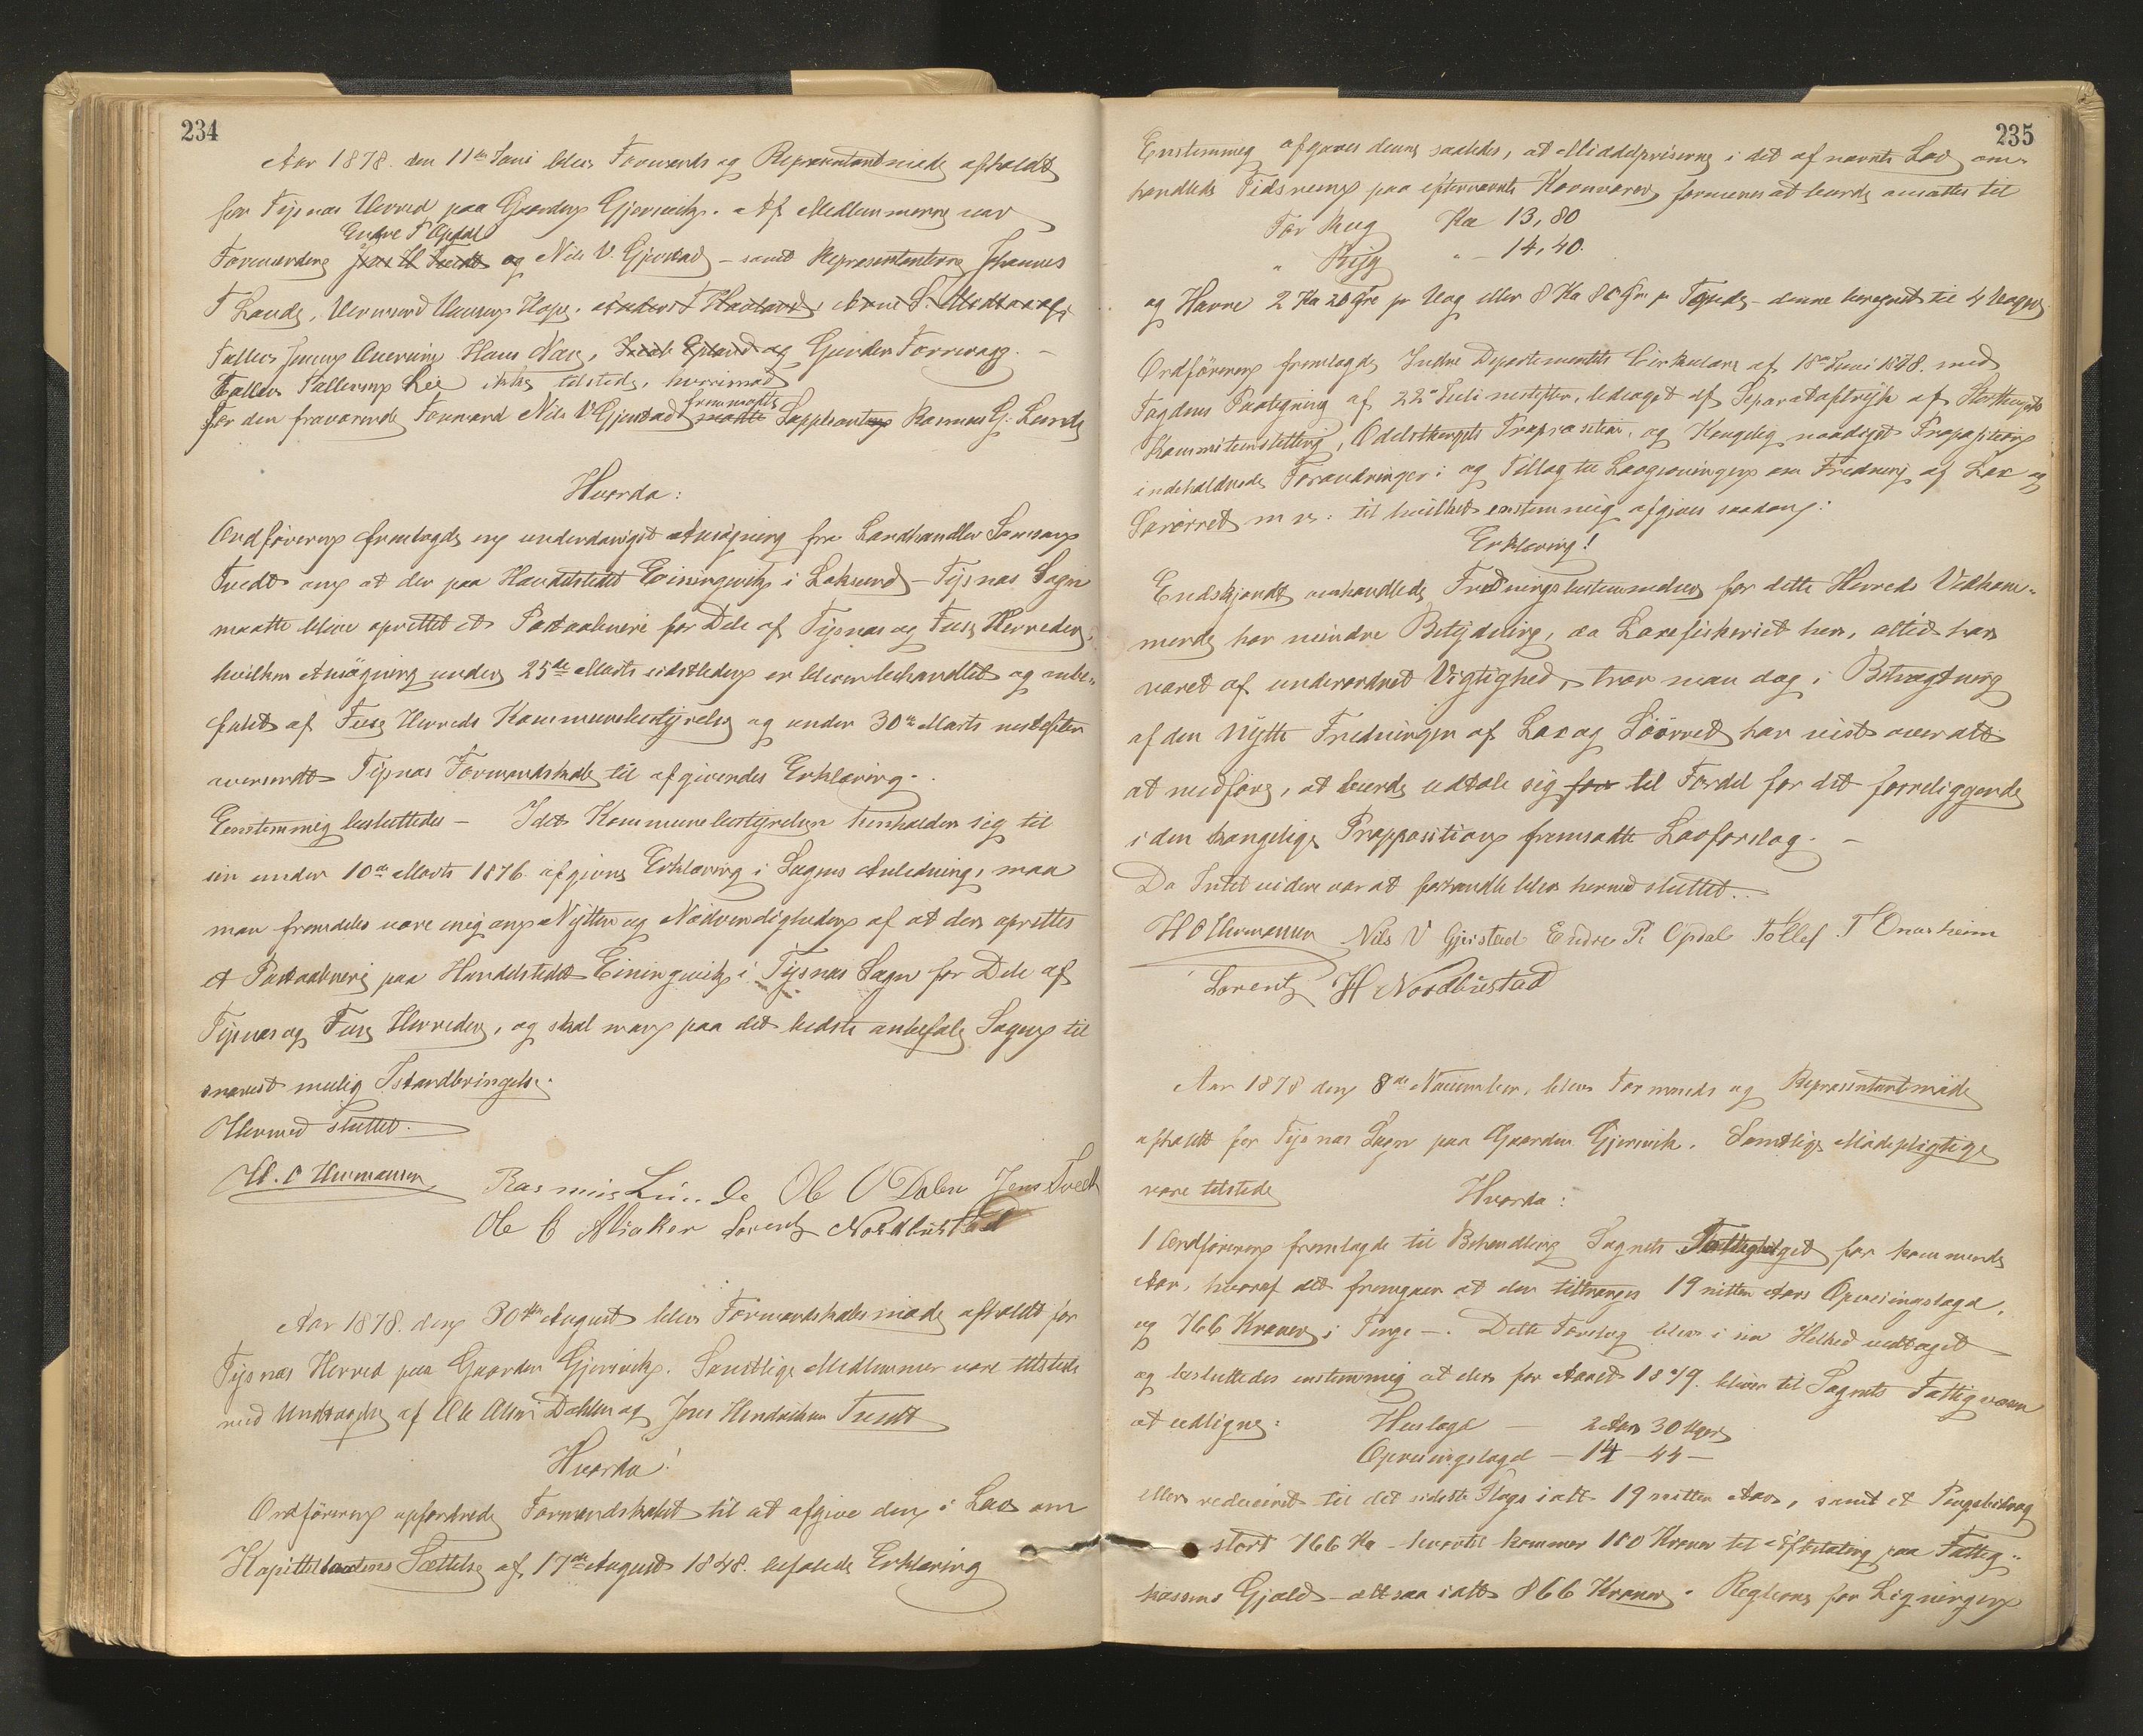 234
Aar 1878. den 11te Juni blev Formands og Repræsentantmøde afholdt
for Tysnæs Herred paa Gaarden Gjersvik. Af Medlemmerne var
Endre P Opdal
Formændene Jens H Tvedt og Nils V. Gjerstad – samt Repræsentanterne Johannes
T Lande, Vermund Hope.
Hans Næs, og Giender Forrevaag. –
Tollev Lie ikke tilstede, hvorimod
fremmødte
For den fraværende Formand Nils V Gjerstad mødte Suppleanten Rasmus G. Lunde
Hvorda:
Ordføreren fremlagde en underdanigst Ansøgning fra Landhandler Samson
Tvedt om at der paa Handelstedet Einingevik i Loksund – Tysnæs Sogn
maatte blive oprettet et Postaabneri for Dele af Tysnæs og Fuse Herreder,
hvilken Ansøgning under 25de Marts sidstleden er bleven behandlet og anbe-
falet af Fuse Herreds Kommunebestyrelse og under 30te Marts nestefter
oversendt Tysnæs Formandskab til afgivendes Erklæring. –
Eenstemmig besluttedes – Idet Kommunebestyrelsen henholder sig til
sin under 10de Marts 1876. afgivne Erklæring i Sagens Anledning, maa
man fremdeles være enig om Nytten og Nødvendigheden af at der oprettes
et Postaabneri paa Handelstedet Einingevik i Tysnæs Sogn for Dele af
Tysnæs og Fuse Herreder, og skal man paa det bedste anbefale Sagen til
snarest mulig Istandbringelse.
Hermed sluttet.
H. O Hermansen Rasmus Lunde Ole O Dalen Jens Tvedt
Ole C Aaker Lorentz Nordbustad
Aar 1878. den 30te August blev Formandskabsmøde afholdt for
Tysnæs Herred paa Gaarden Gjersvik. Samtlige Medlemmer vare tilstede
med Undtagelse af Ole Olsen Dahlen og Jens Hendriksen Tvedt
Hvorda!
Ordføreren opfordrede Formandskabet til at afgive den i Lov om
Kapitelstaxtens Sættelse af 17de August 1848. befalede Erklæring
235
Enstemmig afgaves denne saaledes, at Middelpriserne i det af nævnte Lov om-
handlede Tidsrum paa efternævnte Kornvarer formenes at burde ansættes til
For Rug Kr 13,80
" Byg " – 14,40.
og Havre 2 Kr 20 Øre pr Vog eller 8 Kr 80 Øre pr Tønde – denne beregnet til 4 Voger
Ordføreren fremlagde Indre Departementets Cirkulære af 18de Juni 1878. med
Fogdens Paategning af 22de Juli nestefter, ledsaget af Separataftryk af Storthings
Kommiteindstilling, Odelsthingets Proposition, og Kongelig naadigst Proposition
indeholdende Forandringer i og Tillæg til Lovgivningen om Fredning af Lax og
Søørret m v: til hvilket enstemmig afgives saadan:
Erklæring!
Endskjøndt omhandlede Fredningsbestemmelser for dette Herreds Vedkom-
mende har mindre Betydning, da Laxefiskeriet her, altid har
været af underordnet Vigtighed, tror man dog i Betragtning
af den Nytte Fredningen af Lax og Søørret har vist overalt
at medføre, at burde udtale sig for til Fordel for det forreliggende
i den kongelige Proppositiong fremsatte Lovforslag. –
Da Intet videre var at forhandle blev hermed sluttet.
H O Hermansen Nils V Gjerstad Endre P. Opdal Tollef T Onarheim
Lorentz H Nordbustad
Aar 1878 den 8de November, blev Formands og Repræsentantmøde
afholdt for Tysnæs Sogn paa Gaarden Gjersvik. Samtlige Mødepligtige
vare tilstede Hvorda:
1 Ordføreren fremlagde til Behandling Sognets Fattigbudget for kommende
Aar, hvoraf det fremgaar at der tiltrænges 19 nitten Aars Opveiningslægd,
og 766 Kroner i Penge –. Dette Forslag blev i sin Helhed vedtaget
og besluttedes enstemmig at der for Aaret 1879. bliver til Sognets Fattigvæsen
at udligne: Huslægd – 2 Aar 30 Uger
Opveiningslægd – 14 – 44 –
eller reduceret til det sidste Slags ialt 19 nitten Aar, samt et Pengebidrag
stort 766 Kr – hvortil kommer 100 Kroner til Afbetaling paa Fattig-
kassens Gjæld – altsaa ialt 866 Kroner. Reglerne for Ligningen